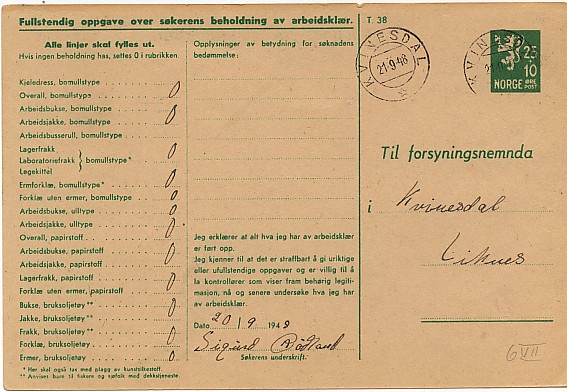 Fullstendig oppgave over søkerens beholdning av arbeidsklær.
Alle linjer skal fylles ut.
Hvis ingen beholdning has, settes 0 i rubrikken.
Kjeledress, bomullstype
Overall, bomullstype 0
Arbeidsbukse, bomullstype
Arbeidsjakke, bomullstype 0
Arbeidsbusserull, bomullstype
Lagerfrakk
Laboratoriefrakk } bomullstype* 0
Legekittel
Ermforklæ, bomullstype* 0
Forklæ uten ermer, bomullstype 0
Arbeidsbukse, ulltype 0
Arbeidsjakke, ulltype
Overall, papirstoff 0
Arbeidsbukse, papirstoff 0
Arbeidsjakke, papirstoff
Lagerfrakk, papirstoff 0
Forklæ uten ermer, papirstoff
Bukse, bruksoljetøy** 0
Jakke, bruksoljetøy**
Frakk, bruksoljetøy** 0
Forklæ, bruksoljetøy
Ermer, bruksoljetøy 0
* Her skal også tas med plagg av kunstsilkestoff.
** Anvises bare til fiskere og sjøfolk med dekkstjeneste.
Opplysninger av betydning for søknadens
bedømmelse:
Jeg erklærer at alt hva jeg har av arbeidsklær
er ført opp.
Jeg kjenner til at det er straffbart å gi uriktige
eller ufullstendige oppgaver og er villig til å
la kontrollører som viser fram behørig legiti-
masjon, nå og senere undersøke hva jeg har
av arbeidsklær.
Dato 20/9 1948
Sigurd
Søkerens underskrift.
T. 38
KVINESDAL
21-9-48
KVINESDAL
25
10
ØRE
NORGE POST
Til forsyningsnemnda
i Kvinesdal
Liknes
6VII